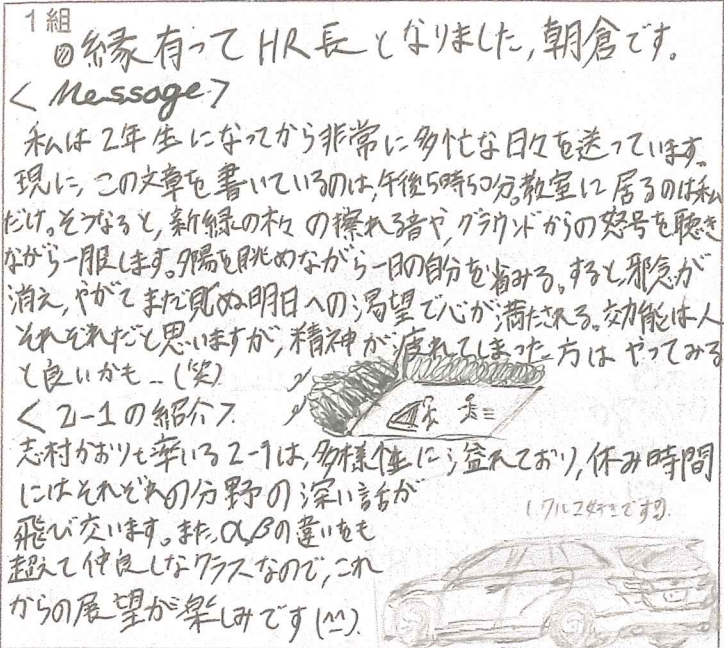 1組
縁有ってHR長となりました,朝倉です。
<Message>
私は2年生になってから非常に多忙な日々を送っています。
現に,この文章を書いているのは,午後5時50分。教室に居るのは私
だけ。そうなると,新緑の木々の擦れる音や,グラウンドからの怒号を聴き
ながら一服します。夕陽を眺めながら一日の自分を省みる。すると,邪念が
消え,やがてまだ見ぬ明日への渇望で心が満たされる。効能は人
それぞれだと思いますが,精神が疲れてしまった方はやってみる
と良いかも…(笑)
<2-1の紹介>
志村かおり率いる2-1は,多様性に溢れており,休み時間
にはそれぞれの分野の深い話が
飛び交います。また,α,βの違いをも
超えて仲良しなクラスなので,これ
からの展望が楽しみです(^^).
(クルマ好きです).